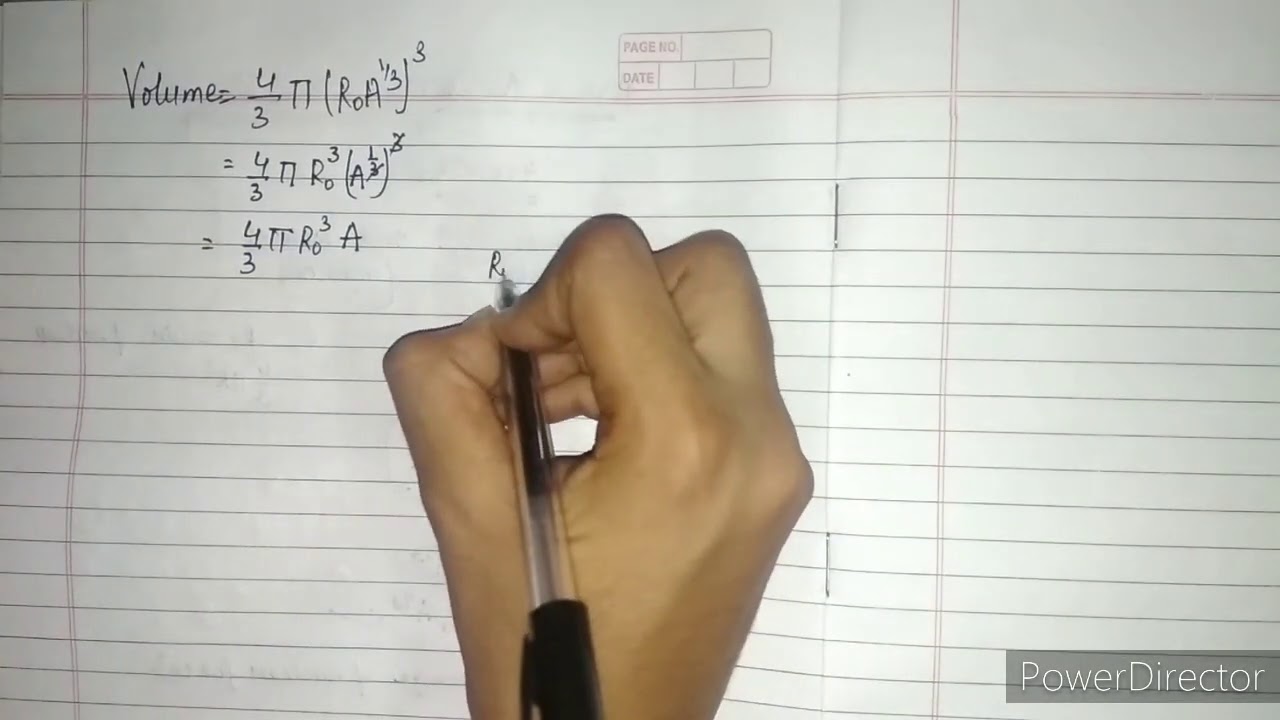 PAGE NO.
DATE
Volume = 4/3 π (R₀A^1/3)^3
= 4/3 π R₀^3 (A^1/3)^3
= 4/3 π R₀^3 A
R
PowerDirector